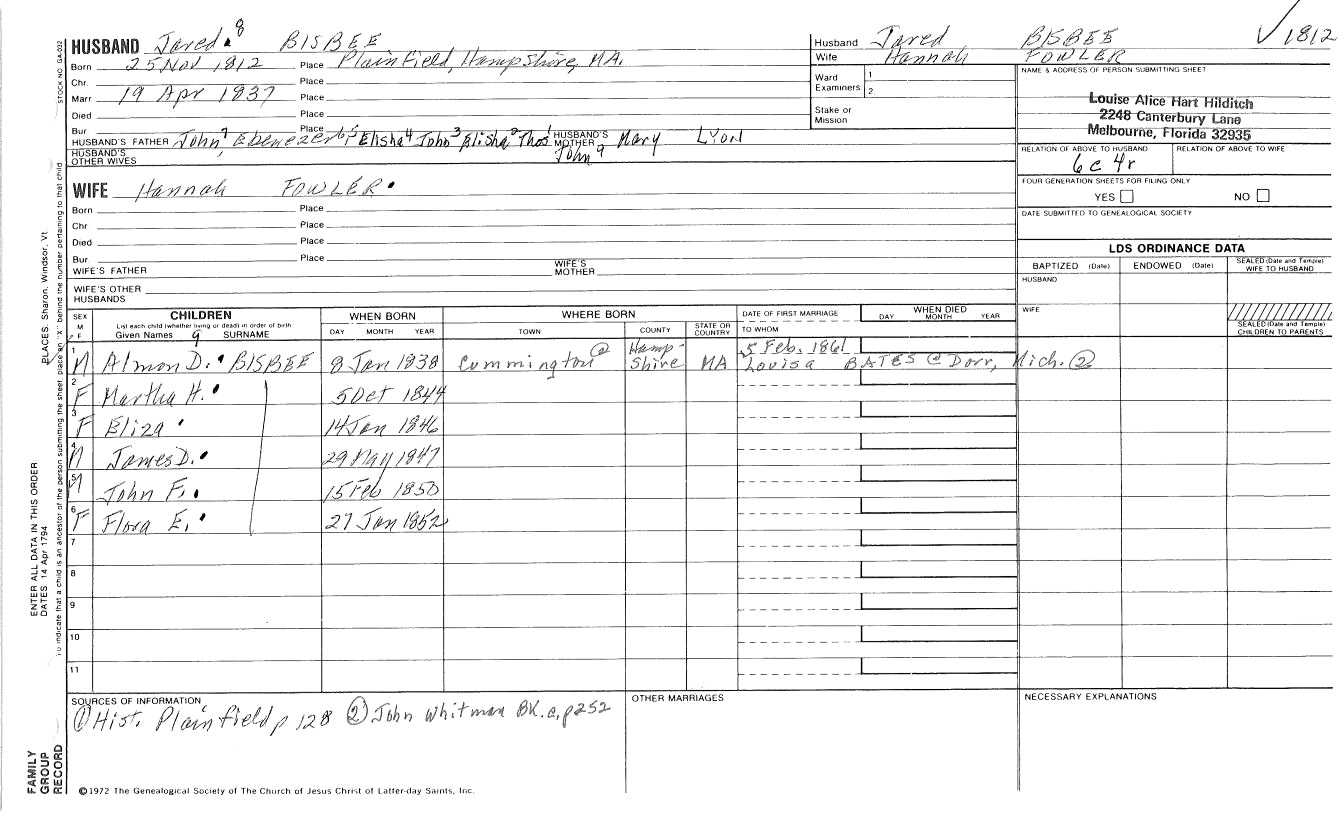 HUSBAND Jared 8 BISBEE
Born 25 Nov 1812 Place Plainfield, Hampshire, MA.
Chr. Place
Marr 19 Apr 1837 Place
Died Place
Bur Place
HUSBAND'S FATHER John 7 Ebenezer 6 Elisha 4 John 3 Elisha 2 Thos 1 HUSBAND'S MOTHER Mary Lyon
John 9
HUSBAND'S OTHER WIVES
Husband Jared BISBEE
Wife Hannah FOWLER
✓ 1812
Ward Examiners 1
2
Stake or Mission
NAME & ADDRESS OF PERSON SUBMITTING SHEET
Louise Alice Hart Hilditch
2248 Canterbury Lane
Melbourne, Florida 32935
RELATION OF ABOVE TO HUSBAND RELATION OF ABOVE TO WIFE
6c4r
FOUR GENERATION SHEETS FOR FILING ONLY
YES NO
DATE SUBMITTED TO GENEALOGICAL SOCIETY
WIFE Hannah FOWLER
Born Place
Chr Place
Died Place
Bur Place
WIFE'S FATHER WIFE'S MOTHER
WIFE'S OTHER HUSBANDS
LDS ORDINANCE DATA
BAPTIZED (Date) ENDOWED (Date) SEALED (Date and Temple) WIFE TO HUSBAND
HUSBAND
WIFE
SEALED (Date and Temple) CHILDREN TO PARENTS
SEX M F CHILDREN WHEN BORN WHERE BORN DATE OF FIRST MARRIAGE WHEN DIED
List each child (whether living or dead) in order of birth
Given Names 9 SURNAME DAY MONTH YEAR TOWN COUNTY STATE OR COUNTRY TO WHOM DAY MONTH YEAR
1 M Almon D. BISBEE 8 Jan 1838 Cummington @ Hampshire MA 5 Feb. 1861 Louisa BATES @ Dorr, Mich. ②
2 F Martha H. 5 Oct 1844
3 F Eliza 14 Jan 1846
4 M James D. 29 May 1847
5 M John F. 15 Feb 1850
6 F Flora E. 27 Jan 1852
7
8
9
10
11
SOURCES OF INFORMATION
① Hist. Plainfield p 128 ② John Whitman BK. p252
OTHER MARRIAGES
NECESSARY EXPLANATIONS
©1972 The Genealogical Society of The Church of Jesus Christ of Latter-day Saints, Inc.
FAMILY GROUP RECORD
ENTER ALL DATA IN THIS ORDER
DATES 14 Apr 1794
PLACES. Sharon, Windsor, Vt
To indicate that a child is an ancestor of the person submitting the sheet, place an "X" behind the number pertaining to that child
STOCK NO GA-032